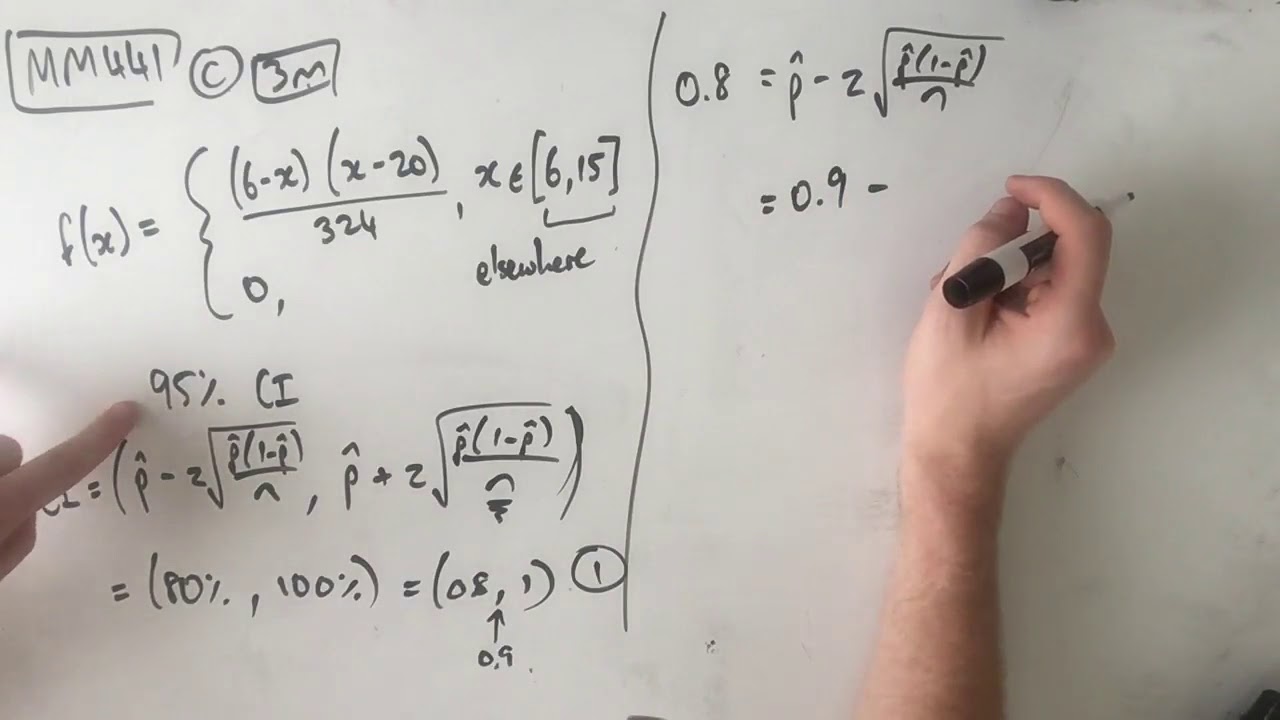 MM441 © 3m
f(x) = { (6-x)(x-20) / 324 , x ∈ [6,15]
0, elsewhere
95% CI
CI = (p̂ - 2√(p̂(1-p̂)/n) , p̂ + 2√(p̂(1-p̂)/n))
= (80%, 100%) = (0.8, 1) ①
↑
0.9
0.8 = p̂ - 2√(p̂(1-p̂)/n)
= 0.9 -